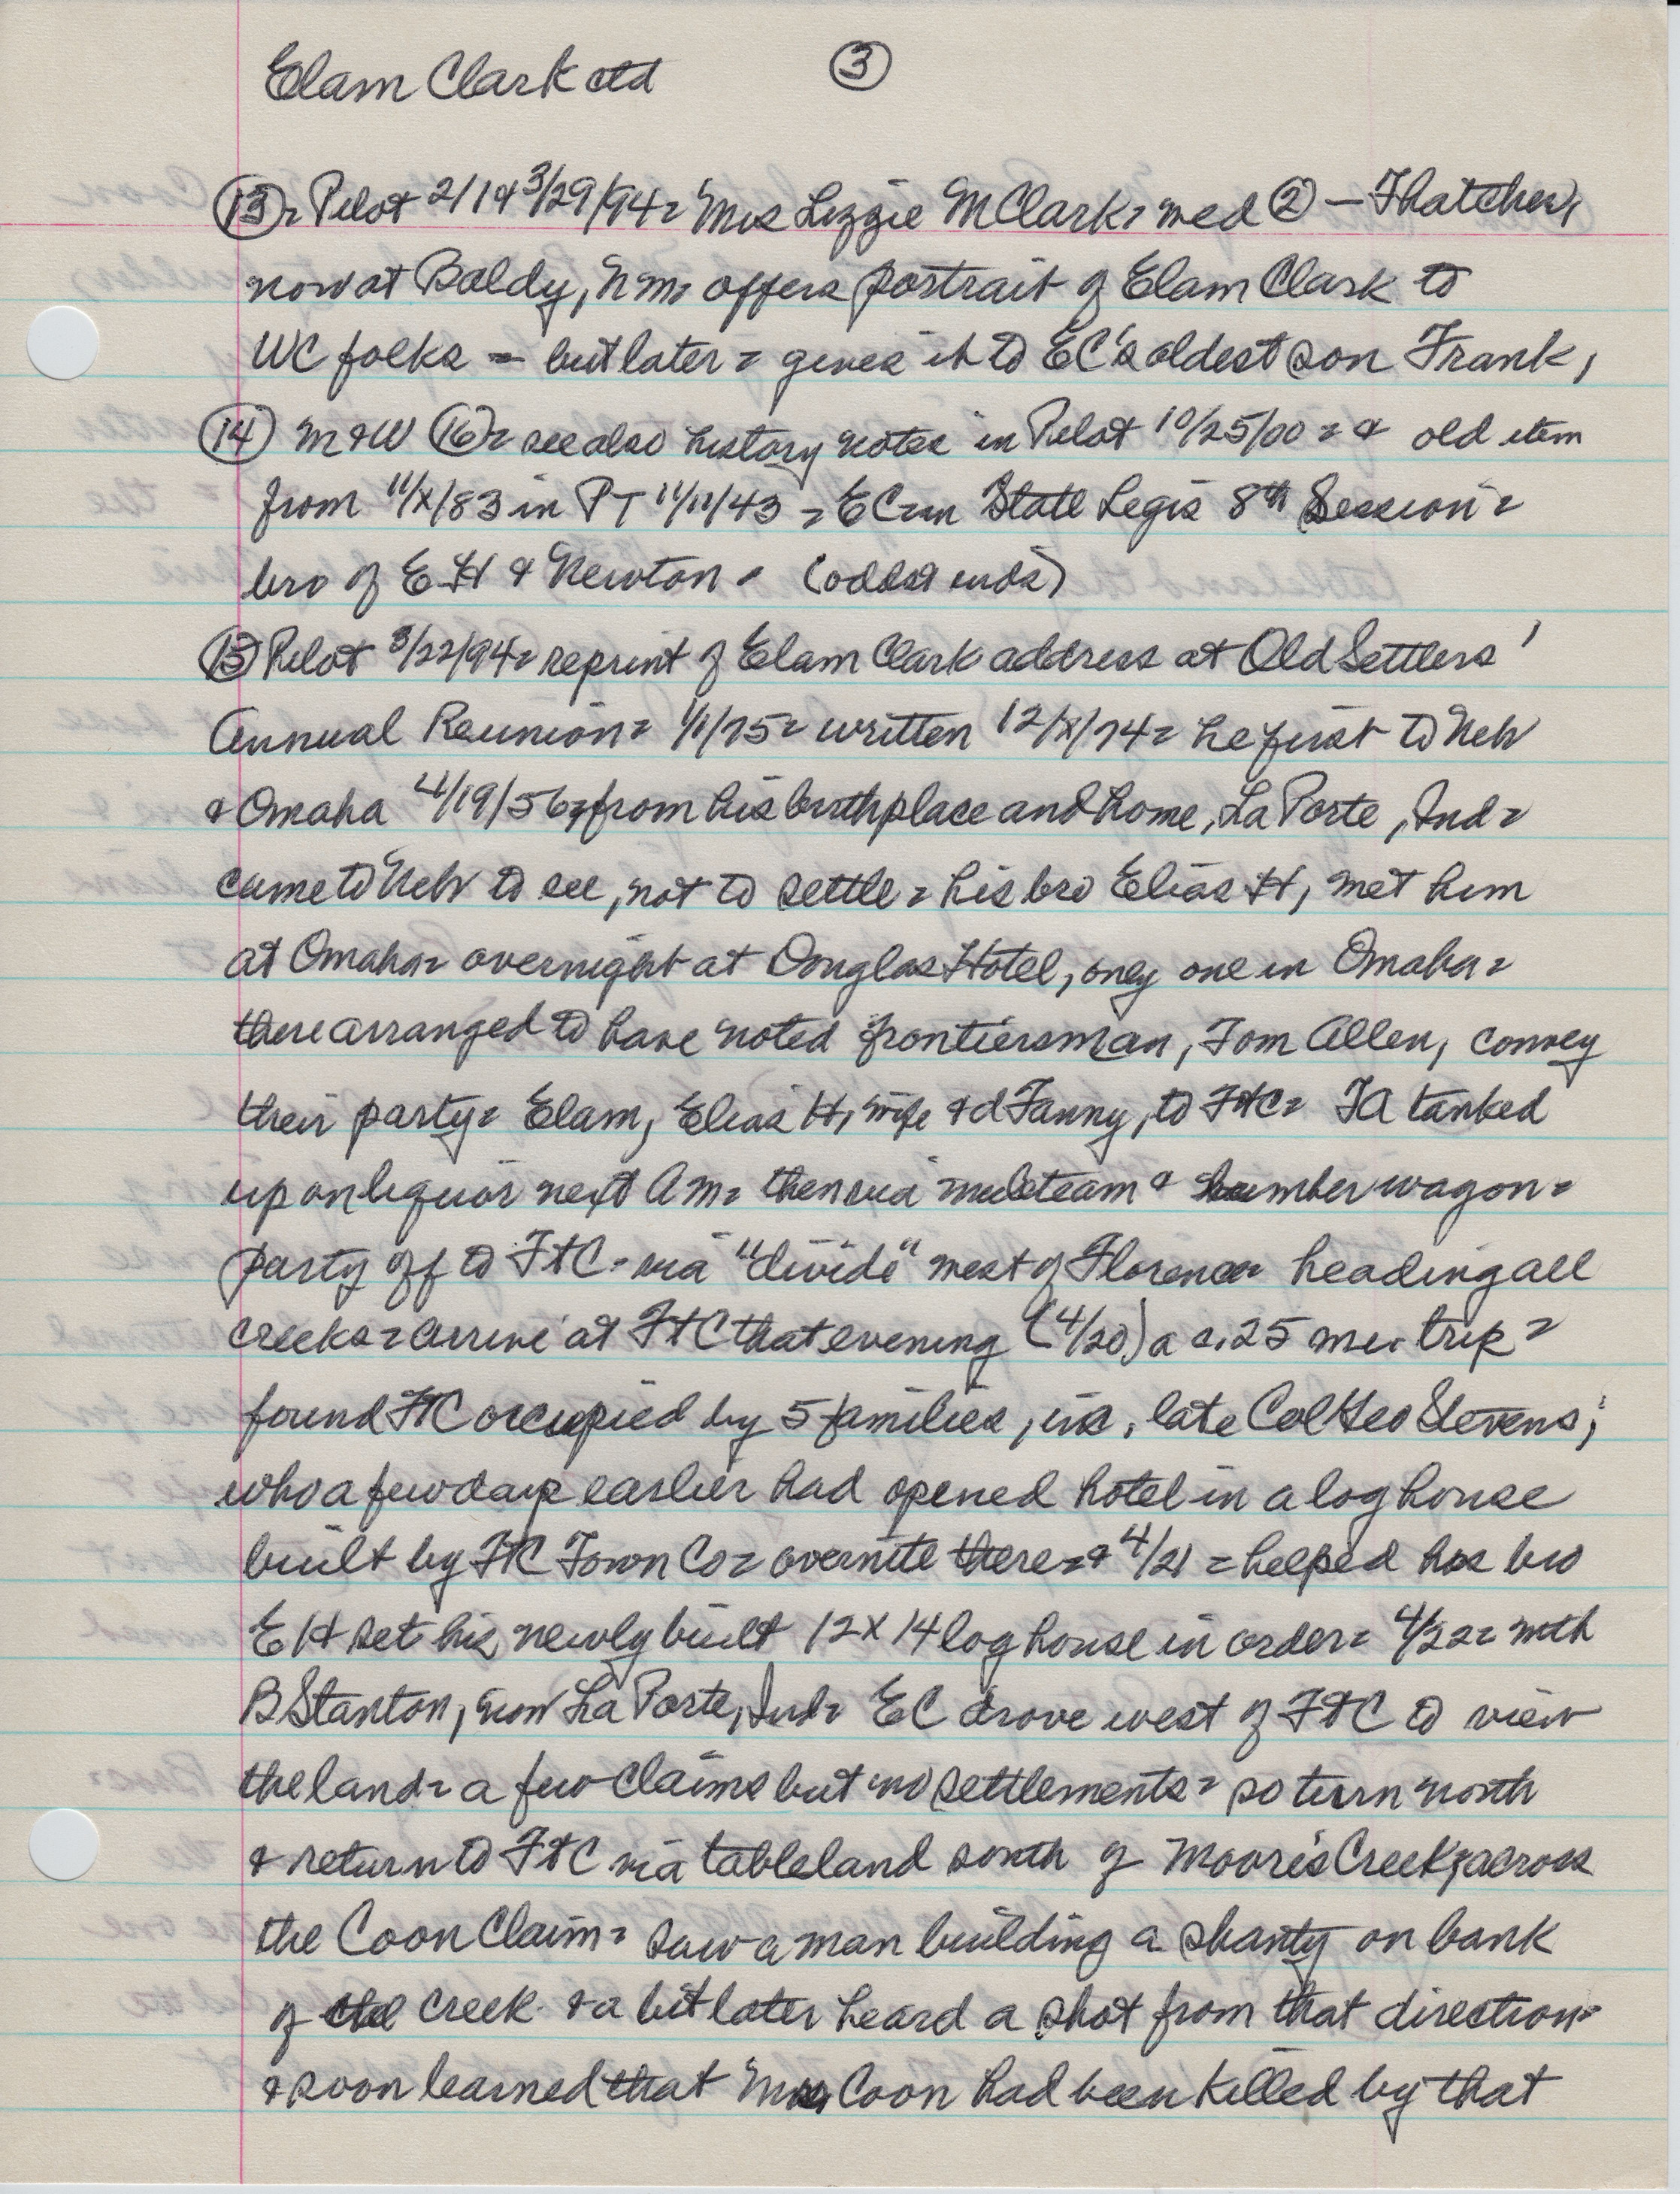 Elam Clark ctd ③
⑬= Pilot 2/1 & 3/29/94= Mrs Lizzie M Clark, med ② — Thatcher,
now at Baldy, N M, offers portrait of Elam Clark to
WC folks = but later = gives it to EC's oldest son Frank,
⑭ M & W ⑯= see also history notes in Pilot 10/25/00 = & old item
from 11/X/83 in PT 11/11/43 = EC in State Legis 8th Session =
bro of E H & Newton. (odds & ends)
⑮ Pilot 3/22/94= reprint of Elam Clark address at Old Settlers'
Annual Reunion= 1/1/75= written 12/X/74= he first to Neb
& Omaha 4/19/56, from his birthplace and home, La Porte, Ind=
came to Neb to see, not to settle = his bro Elias H, met him
at Omaha= overnight at Douglas Hotel, only one in Omaha=
there arranged to have noted frontiersman, Tom Allen, convey
their party= Elam, Elias H, wife & d Fanny, to FtC= TA tanked
up on liquor next Am= then via mule team & lumber wagon=
party off to FtC= via "divide" west of Florence= heading all
creeks= arrive at FtC that evening (4/20) a c. 25 mi. trip=
found FtC occupied by 5 families, viz, late Col Geo Stevens;
who a few days earlier had opened hotel in a log house
built by FtC Town Co= overnite there= & 4/21 = helped his bro
E H set his newly built 12 X 14 log house in order= 4/22= with
B Stanton, now La Porte, Ind= EC drove west of FtC to view
the land= a few claims but no settlements= so turn north
& return to FtC via tableland south of Moore's Creek, across
the Coon Claim= saw a man building a shanty on bank
of the creek & a bit later heard a shot from that direction=
& soon learned that Mrs Coon had been killed by that